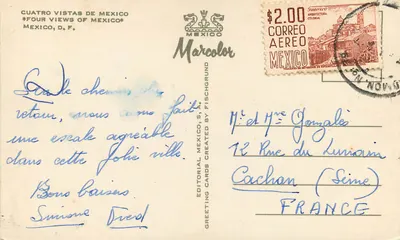 CUATRO VISTAS DE MEXICO
"FOUR VIEWS OF MEXICO"
MEXICO, D. F.
MEXICO
Marcolor
EDITORIAL MEXICO, S. A.
GREETING CARDS CREATED BY FISCHGRUND
$2.00
CORREO
AEREO
MEXICO
ARQUITECTURA
COLONIAL
Sur le chemin du
retour, nous avons fait
une escale agréable
dans cette Jolie ville.
Bons baisers.
Simone Fred
Mr et Mme Gonzalès
12 Rue du
Cachan (Seine)
FRANCE